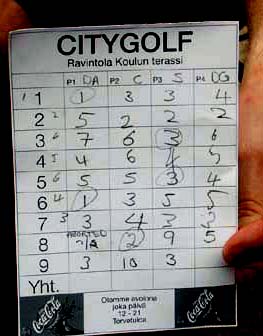 CITYGOLF
Ravintola Koulun terassi
P1 DA P2 C P3 S P4 DG
1 1 1 3 3 4
2 2 5 2 2 2
3 6 7 6 3 6
4 5 4 6 4 5
5 6 5 5 3 4
6 4 1 3 5 5
7 3 3 4 3
8 ABORTED n/a 2 9 5
9 3 10 3
Yht.
Coca-Cola Olemme avoinna Coca-Cola
joka päivä
12 - 21
Tervetuloa